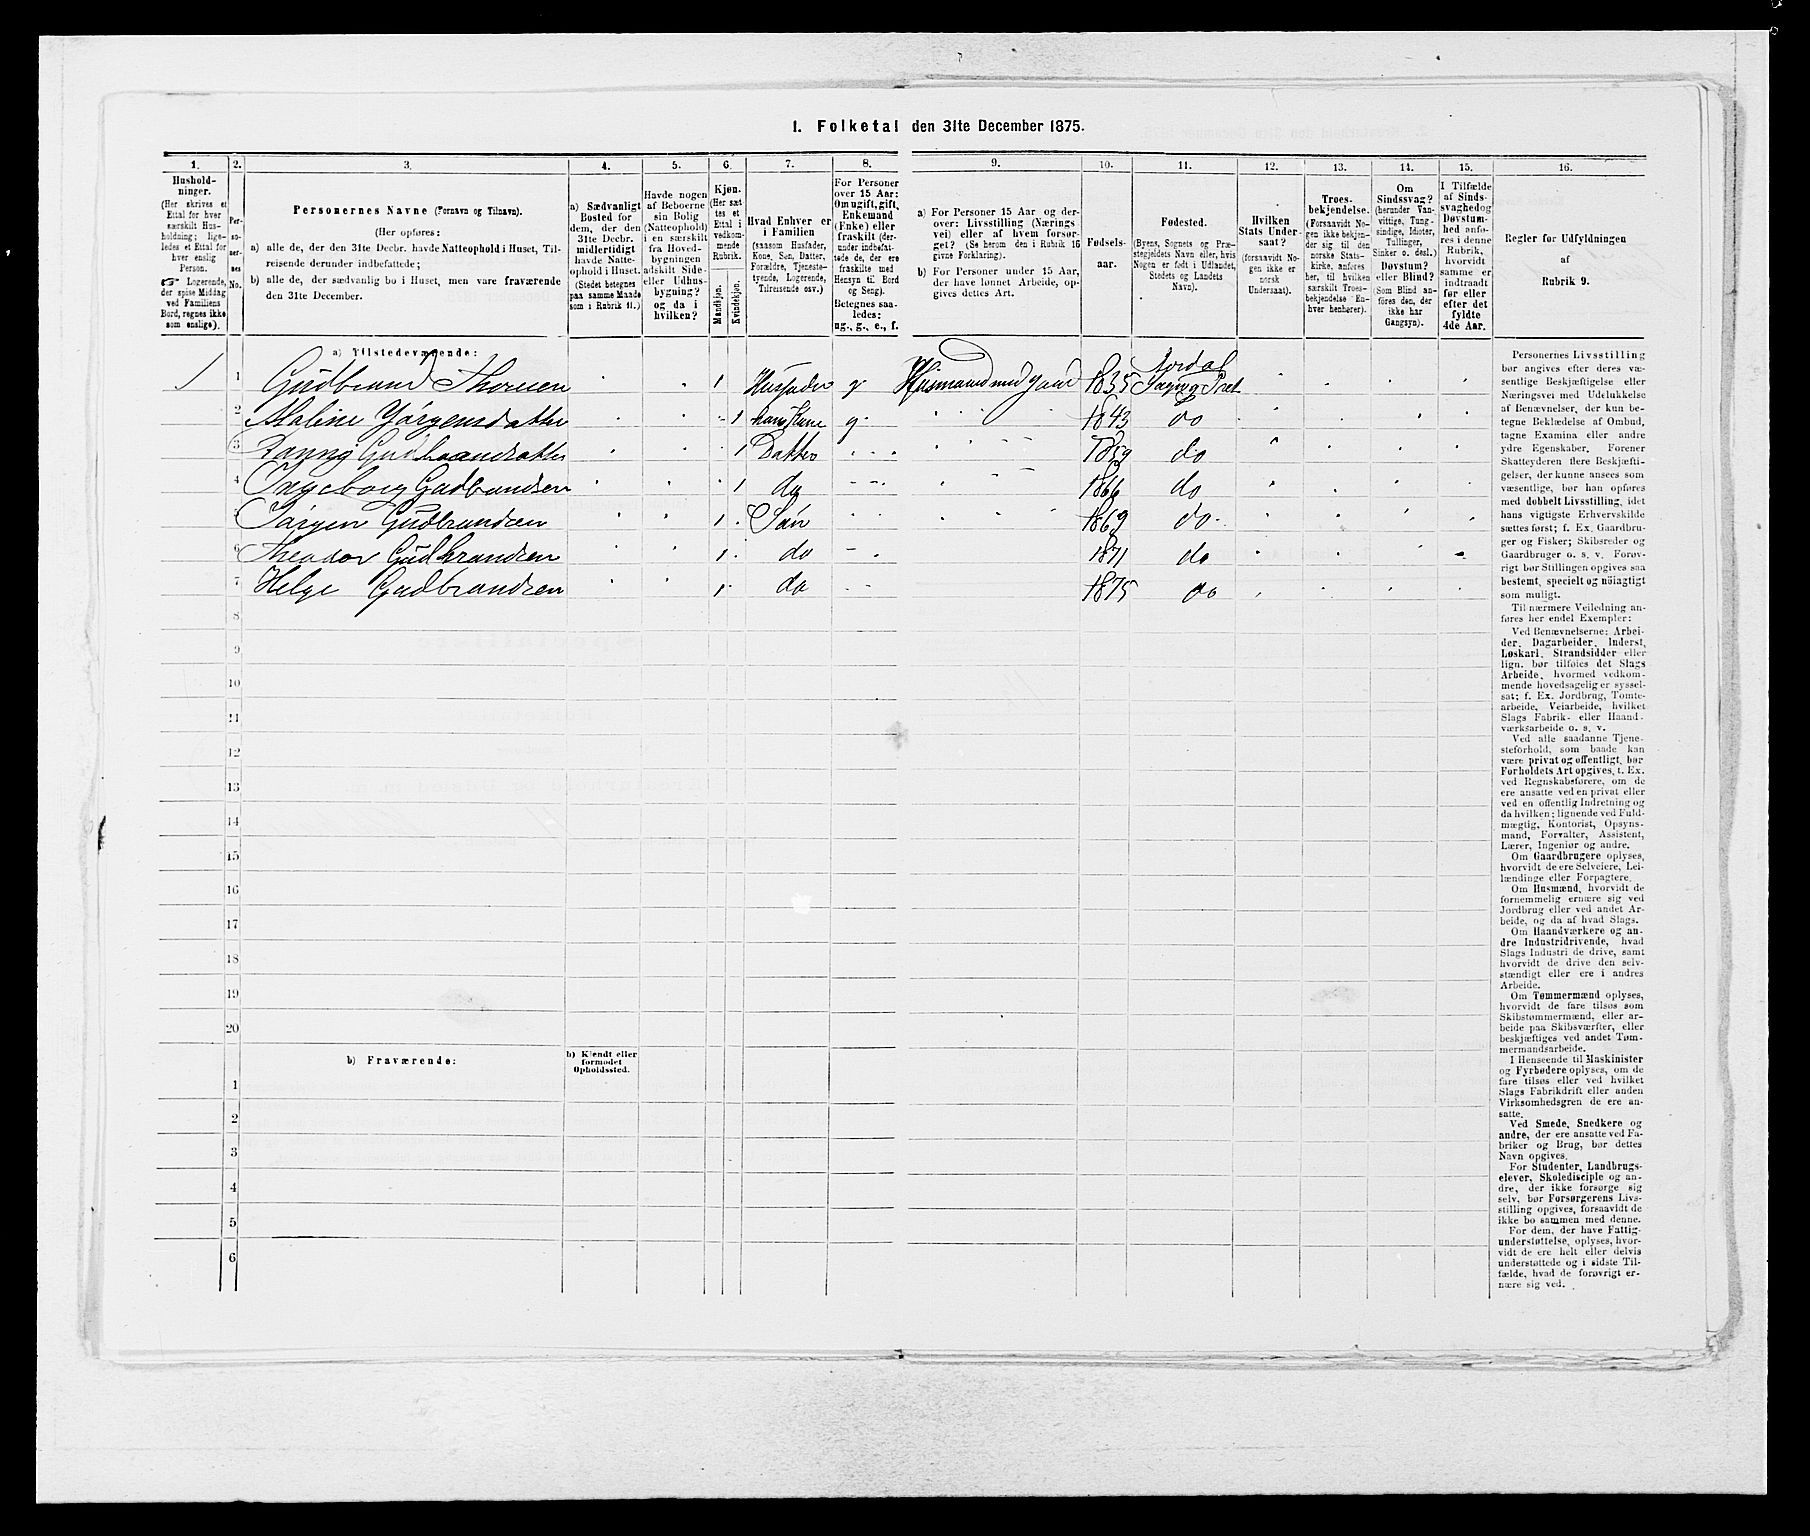 1. Folketal den 31te December 1875.
1.
Hushold-
ninger.
(Her skrives et
Ettal for hver
særskilt Hus-
holdning; lige-
ledes et Ettal for
hver enslig
Person.
☞ Logerende,
der spise Middag
ved Familiens
Bord, regnes ikke
som enslige).
2.
Per-
so-
ner-
nes
No.
3.
Personernes Navne (Fornavn og Tilnavn).
(Her opføres:
a) alle de, der den 31te Decbr. havde Natteophold i Huset, Til-
reisende derunder indbefattede;
b) alle de, der sædvanlig bo i Huset, men vare fraværende
den 31te December.
4.
a) Sædvanligt
Bosted for
dem, der den
31te Decbr.
midlertidigt
havde Natte-
ophold i Huset.
(Stedet betegnes
paa samme Maade
som i Rubrik 11.)
5.
Havde nogen
af Beboerne
sin Bolig
(Natteophold)
i en særskilt
fra Hoved-
bygningen
adskilt Side-
eller Udhus-
bygning?
og da i
hvilken?
6.
Kjøn.
(Her sæt-
tes et
Ettal i
vedkom-
mende
Rubrik.
Mandkjøn.
Kvindekjøn.
7.
Hvad Enhver er
i Familien
(saasom Husfader,
Kone, Søn, Datter,
Forældre, Tjeneste-
tyende, Logerende,
Tilreisende osv.)
8.
For Personer
over 15 Aar:
Om ugift, gift,
Enkemand
(Enke) eller
fraskilt (der-
under indbefat-
tede de, der ere
fraskilte med
Hensyn til Bord
og Seng).
Betegnes saa-
ledes:
ug., g., e., f.
9.
a) For Personer 15 Aar og der-
over: Livsstilling (Nærings
vei) eller af hvem forsør-
get? (Se herom den i Rubrik 16
givne Forklaring).
b) For Personer under 15 Aar,
der have lønnet Arbeide, op-
gives dettes Art.
10.
Fødsels-
aar.
11.
Fødested.
(Byens, Sognets og Præ-
stegjeldets Navn eller, hvis
Nogen er født i Udlandet,
Stedets og Landets
Navn).
12.
Hvilken
Stats Under-
saat?
(forsaavidt No-
gen ikke er
norsk
Undersaat).
13.
Troes-
bekjendelse.
(Forsaavidt No-
gen ikke bekjen-
der sig til den
norske Stats-
kirke, anføres
her, til hvilken
særskilt Troes-
bekjendelse En-
hver henhører).
14.
Om
Sindssvag?
(herunder Van-
vittige, Tung-
sindige, Idioter,
Tullinger,
Sinker o. desl.)
Døvstum?
eller Blind?
(Som Blind an-
føres den, der
ikke har
Gangsyn).
15.
I Tilfælde
af Sinds-
svaghed og
Døvstum-
hed anfø-
res i denne
Rubrik,
hvorvidt
samme er
indtraadt
før eller
efter det
fyldte
4de Aar.
16.
Regler for Udfyldningen
af
Rubrik 9.
a) Tilstedeværende:
1 1 Gudbrand Thoresen 1 Husfader g Husmand med Jord 1835 Sogn og Præst
2 Malene Jørgensdatter 1 hans Kone g 1843 do
3 Gudbrandsdatter 1 Datter 1859 do
4 Ingeborg Gudbrandsen 1 do 1866 do
5 Jørgen Gudbrandsen 1 Søn 1869 do
6 Theodor Gudbrandsen 1 do 1871 do
7 Helge Gudbrandsen 1 do 1875 do
8
9
10
11
12
13
14
15
16
17
18
19
20
b) Fraværende:
b) Kjendt eller
formodet
Opholdssted.
1
2
3
4
5
6
Personernes Livsstilling
bør angives efter deres væ-
sentlige Beskjæftigelse eller
Næringsvei med Udelukkelse
af Benævnelser, der kun be-
tegne Beklædelse af Ombud,
tagne Examina eller andre
ydre Egenskaber. Forener
Skatteyderen flere Beskjæfti-
gelser, der kunne ansees som
væsentlige, bør han opføres
med dobbelt Livsstilling, idet
hans vigtigste Erhvervskilde
sættes først; f. Ex. Gaardbru-
ger og Fisker; Skibsreder og
Gaardbruger o. s. v. Forøv-
rigt bør Stillingen opgives saa
bestemt, specielt og nøiagtigt
som muligt.
Til nærmere Veiledning an-
føres her endel Exempler:
Ved Benævnelserne: Arbei-
der, Dagarbeider, Inderst,
Løskarl, Strandsidder eller
lign. bør tilføies det Slags
Arbeide, hvormed vedkom-
mende hovedsagelig er syssel-
sat; f. Ex. Jordbrug, Tomte-
arbeide, Veiarbeide, hvilket
Slags Fabrik- eller Haand-
værksarbeide o. s. v.
Ved alle saadanne Tjene-
steforhold, som baade kan
være privat og offentligt, bør
Forholdets Art opgives, t. Ex.
ved Regnskabsførere, om de
ere ansatte ved en privat eller
ved en offentlig Indretning og
da hvilken; lignende ved Fuld-
mægtig, Kontorist, Opsyns-
mand, Forvalter, Assistent,
Lærer, Ingeniør og andre.
Om Gaardbrugere oplyses,
hvorvidt de ere Selveiere, Lei-
lændinge eller Forpagtere.
Om Husmænd, hvorvidt de
fornemmelig ernære sig ved
Jordbrug eller ved andet Ar-
beide, og da af hvad Slags.
Om Haandværkere og an-
dre Industridrivende, hvad
Slags Industri de drive, samt
hvorvidt de drive den selv-
stændigt eller ere i andres
Arbeide.
Om Tømmermænd oplyses,
hvorvidt de fare tilsøs som
Skibstømmermænd, eller ar-
beide paa Skibsværfter, eller
beskjæftiges ved andet Tøm-
mermandsarbeide.
I Henseende til Maskinister
og Fyrbødere oplyses, om de
fare tilsøs eller ved hvilket
Slags Fabrikdrift eller anden
Virksomhedsgren de ere an-
satte.
Ved Smede, Snedkere og
andre, der ere ansatte ved Fa-
briker og Brug, bør dettes
Navn opgives.
For Studenter, Landbrugs-
elever, Skoledisciple og an-
dre, der ikke forsørge sig
selv, bør Forsørgerens Livs-
stilling opgives, forsaavidt de
ikke bo sammen med denne.
For dem, der have Fattig-
understøttelse, oplyses, hvor-
vidt de ere helt eller delvis
understøttede og i sidste Til-
fælde, hvad de forøvrigt er-
nære sig ved.